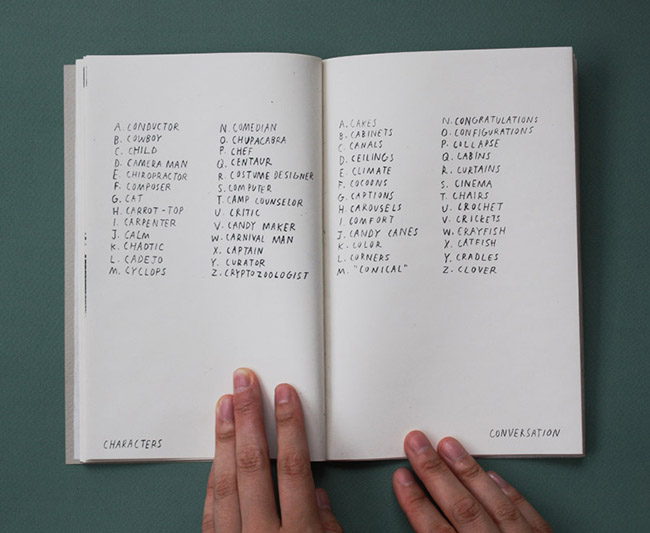 A. CONDUCTOR
B. COWBOY
C. CHILD
D. CAMERA MAN
E. CHIROPRACTOR
F. COMPOSER
G. CAT
H. CARROT-TOP
I. CARPENTER
J. CALM
K. CHAOTIC
L. CADEJO
M. CYCLOPS
N. COMEDIAN
O. CHUPACABRA
P. CHEF
Q. CENTAUR
R. COSTUME DESIGNER
S. COMPUTER
T. CAMP COUNSELOR
U. CRITIC
V. CANDY MAKER
W. CARNIVAL MAN
X. CAPTAIN
Y. CURATOR
Z. CRYPTOZOOLOGIST
CHARACTERS
A. CAKES
B. CABINETS
C. CANALS
D. CEILINGS
E. CLIMATE
F. COCOONS
G. CAPTIONS
H. CAROUSELS
I. COMFORT
J. CANDY CANES
K. COLOR
L. CORNERS
M. "CONICAL"
N. CONGRATULATIONS
O. CONFIGURATIONS
P. COLLAPSE
Q. CABINS
R. CURTAINS
S. CINEMA
T. CHAIRS
U. CROCHET
V. CRICKETS
W. CRAYFISH
X. CATFISH
Y. CRADLES
Z. CLOVER
CONVERSATION